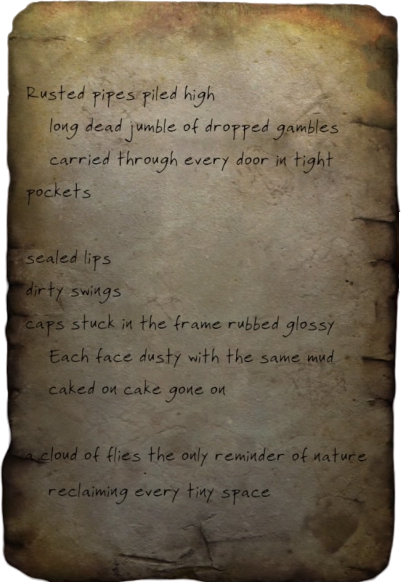 Rusted pipes piled high
long dead jumble of dropped gambles
carried through every door in tight
pockets

sealed lips
dirty swings
caps stuck in the frame rubbed glossy
Each face dusty with the same mud
caked on cake gone on

a cloud of flies the only reminder of nature
reclaiming every tiny space